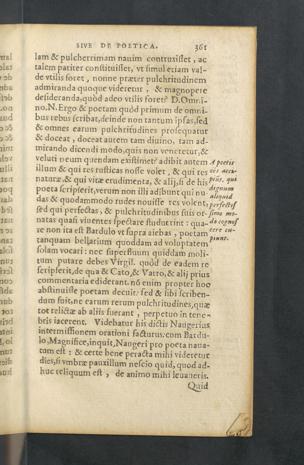 SIVE DE POETICA. 361
lam & pulcherrimam nauim contruxisset, ac
talem pariter constituisset, vt simul etiam val-
de vtilis foret, nonne præter pulchritudinem
admiranda quoque videretur, & magnopere
desideranda, quòd adeo vtilis foret? D. Omni-
no. N. Ergo & poetam quòd primum de omni-
bus rebus scribat, deinde non tantum ipsas, sed
& omnes earum pulchritudines prosequatur
& doceat, doceat autem tam diuino, tam ad-
mirando dicendi modo, quis non veneretur, &
veluti deum quendam existimet? adibit autem
illum & qui res rusticas nosse volet, & qui res
naturæ, & qui vitæ erudimenta, & alij, si de his
poeta scripserit, verum non illi adibunt qui nu-
das & quodammodo rudes nouisse res volent,
sed qui perfectas, & pulchritudinibus suis or-
natas quasi viuentes spectare student: qua-
re non ita est Bardulo vt supra aiebas, poetam
tanquam bellarium quoddam ad voluptatem
solam vocari: nec superfluum quiddam moli-
tum putare debes Virgil. quòd de eadem re
scripserit, de qua & Cato, & Varro, & alij prius
commentaria ediderant. nō enim propter hoc
abstinuisse poetam decuit. sed & sibi scriben-
dum fuit, ne earum rerum pulchritudines, quæ
tot relictæ ab alijs fuerant, perpetuo in tene-
bris iacerent. Videbatur his dictis Naugerius
intermissionem orationi facturus. cum Bardu-
lo, Magnifice, inquit, Naugeri pro poeta naua-
tum est: & certe bene peracta mihi videretur
dies, si vmbræ pauxillum nescio quid, quod ad-
huc reliquum est, de animo mihi leuaueris.
Quid
A poetis
res acci-
piēt, qui
dignum
aliquid
perfectis-
simo mo-
do cognos-
cere cu-
piunt.